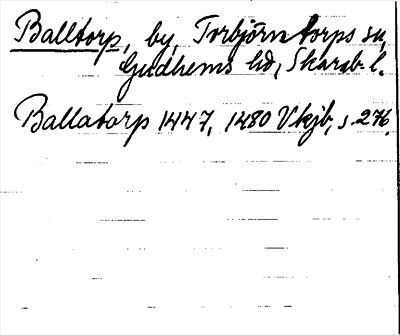 Balltorp, by, Torbjörntorps sn,
Gudhems hd, Skarab. l.
Ballatorp 1447, 1480 Vkjb, s. 276.